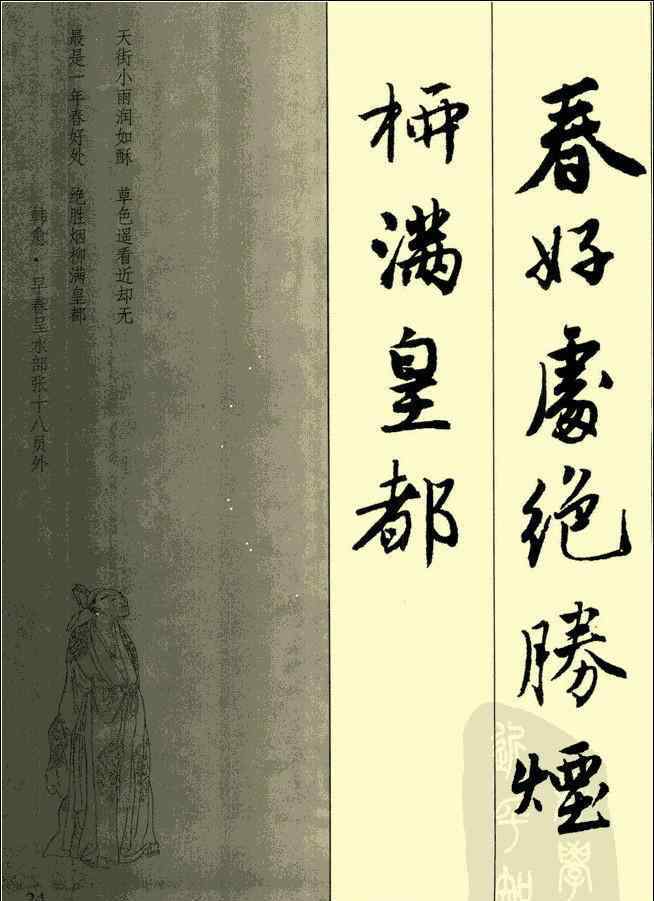 春好處絶勝煙
桺滿皇都
天街小雨润如酥 草色遥看近却无
最是一年春好处 绝胜烟柳满皇都
韩愈·早春呈水部张十八员外
24